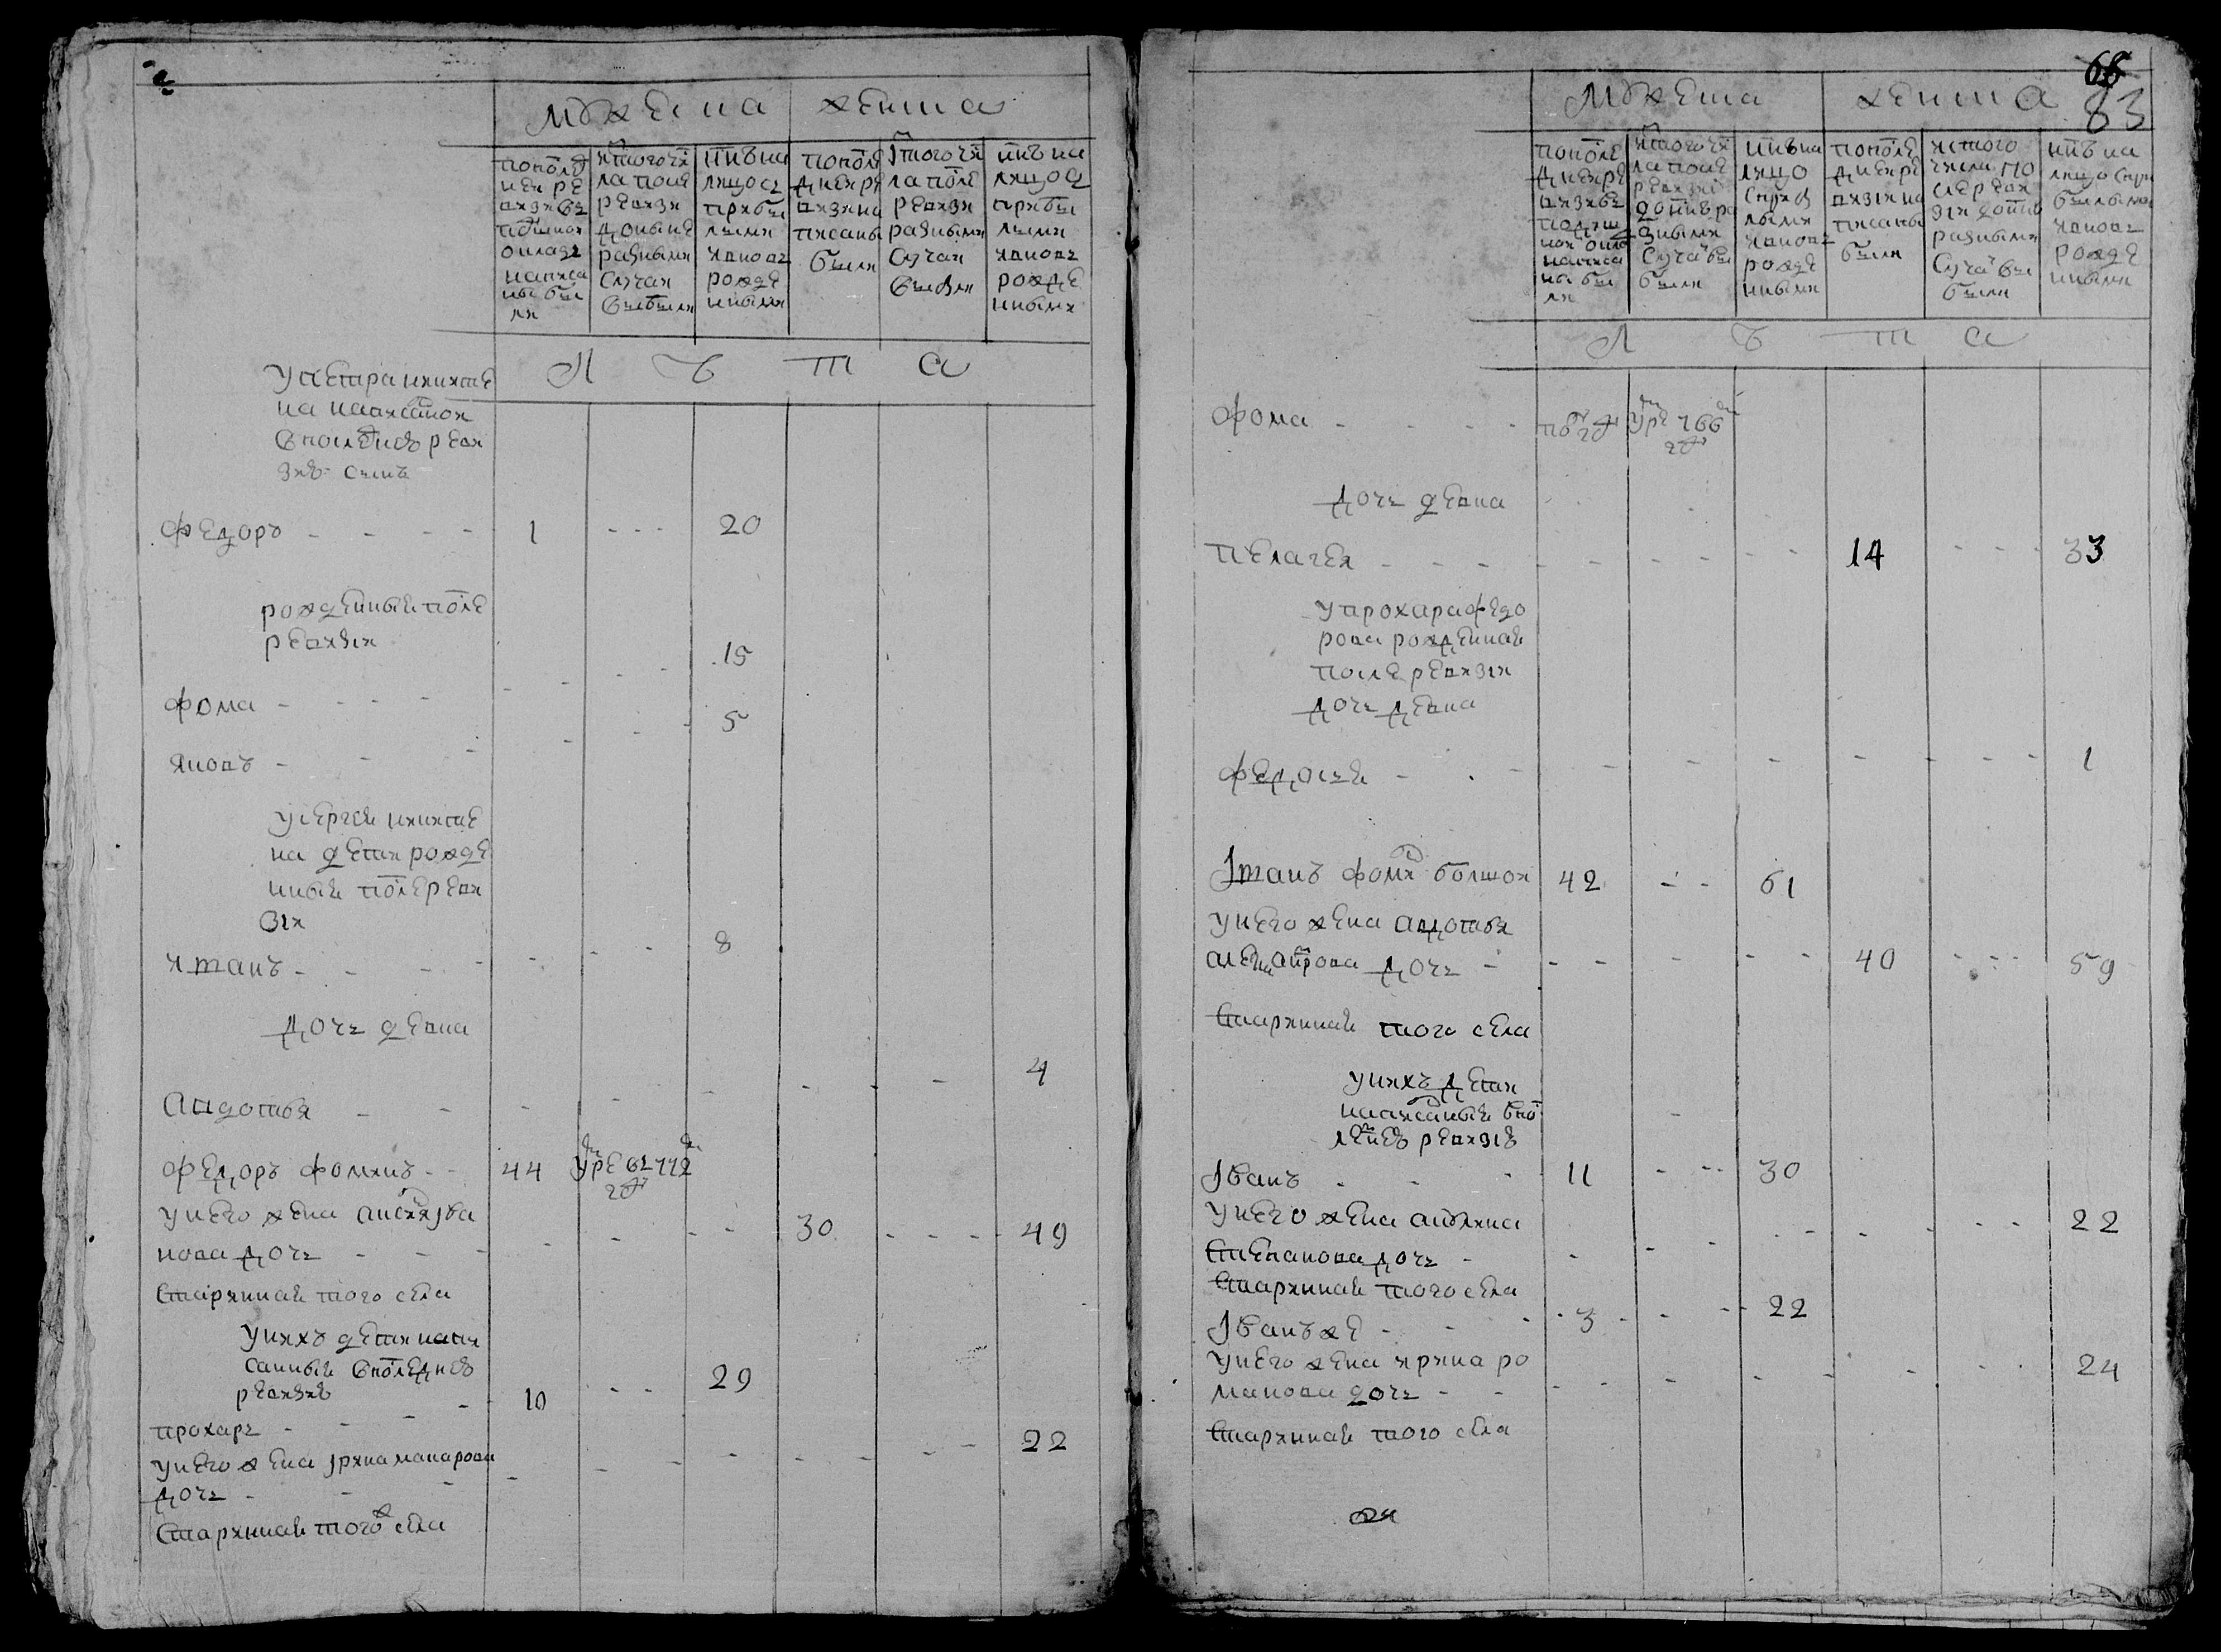 мужеска женска
пополѣ
ней ре
визиі въ
подушной
окладъ
написа
ны бы
ли
ис того чи
ла после
ревизи
до ныне
разными
случаи
выбыли
ннѣ на
лицо съ
прибы
лыми
и вновь
рожде
нными
пополе
дней ре
визи на
писаны
были
ис того чи
ла после
ревизи
разными
случаи
выбыли
ннѣ на
лицо съ
прибы
лыми
и вновь
рожде
нными
Л ѣ т а
У петра никите
на написаной
в последнѣй реви
зиѣ сынъ
Федоръ - - - - 1 - - - 20
рожденныя после
ревизии
Фома - - - - - - - - 15
Яковъ - - - - - - 5
У сергея никите
на дети рожде
нныя после реви
зіи
Иванъ - - - - - - - 8
дочь девка
Авдотья - - - - - - - - 4
Федоръ Фоминъ - - 44 умре въ 772 годѣ
у него жена аксинья ива
нова дочь - - - - - - - 30 - - - - 49
Старинная того села
У нихъ дети напи
санныя в последнѣй
ревизиѣ
прохаръ - - - - - 10 - - 29
у него жена ирина макарова
дочь - - - - - - - - - - 22
Старинная того ж села
66
83
мужеска женска
пополе
дней ре
визиі въ
подуш
ной окла
написа
ны бы
ли
ис того чи
ла после
ревизиі
до ннѣ ра
зными
случаи вы
были
ннѣ на
лицо
с прибы
лыми
и вновь
рожде
нными
пополе
дней ре
визіи на
писаны
были
ис того
числа по
сле реви
зіи до ннѣ
разными
случаи вы
были
ннѣ на
лицо с при
былыми
и вновь
рожде
нными
Л ѣ т а
Фома - - - - умре 766 годѣ
дочь девка
пелагея - - - - - - - - - 14 - - - 33
У прохара федо
рова рожденная
после ревизіи
дочь девка
Федосья - - - - - - - - - - 1
Степанъ фомин большой 42 - - 61
у него жена авдотья
александрова дочь - - - - - - 40 - - - 59
Старинная того села
У нихъ дети
написанныя в по
следнѣй ревизіѣ
Иванъ - - - 11 - - - 30
У него жена акулина
Степанова дочь - - - - - - - - - - 22
Старинная того села
Иванъ же - - - 3 - - - 22
У него жена ирина ро
манова дочь - - - - - - - - - - 24
Старинная того села